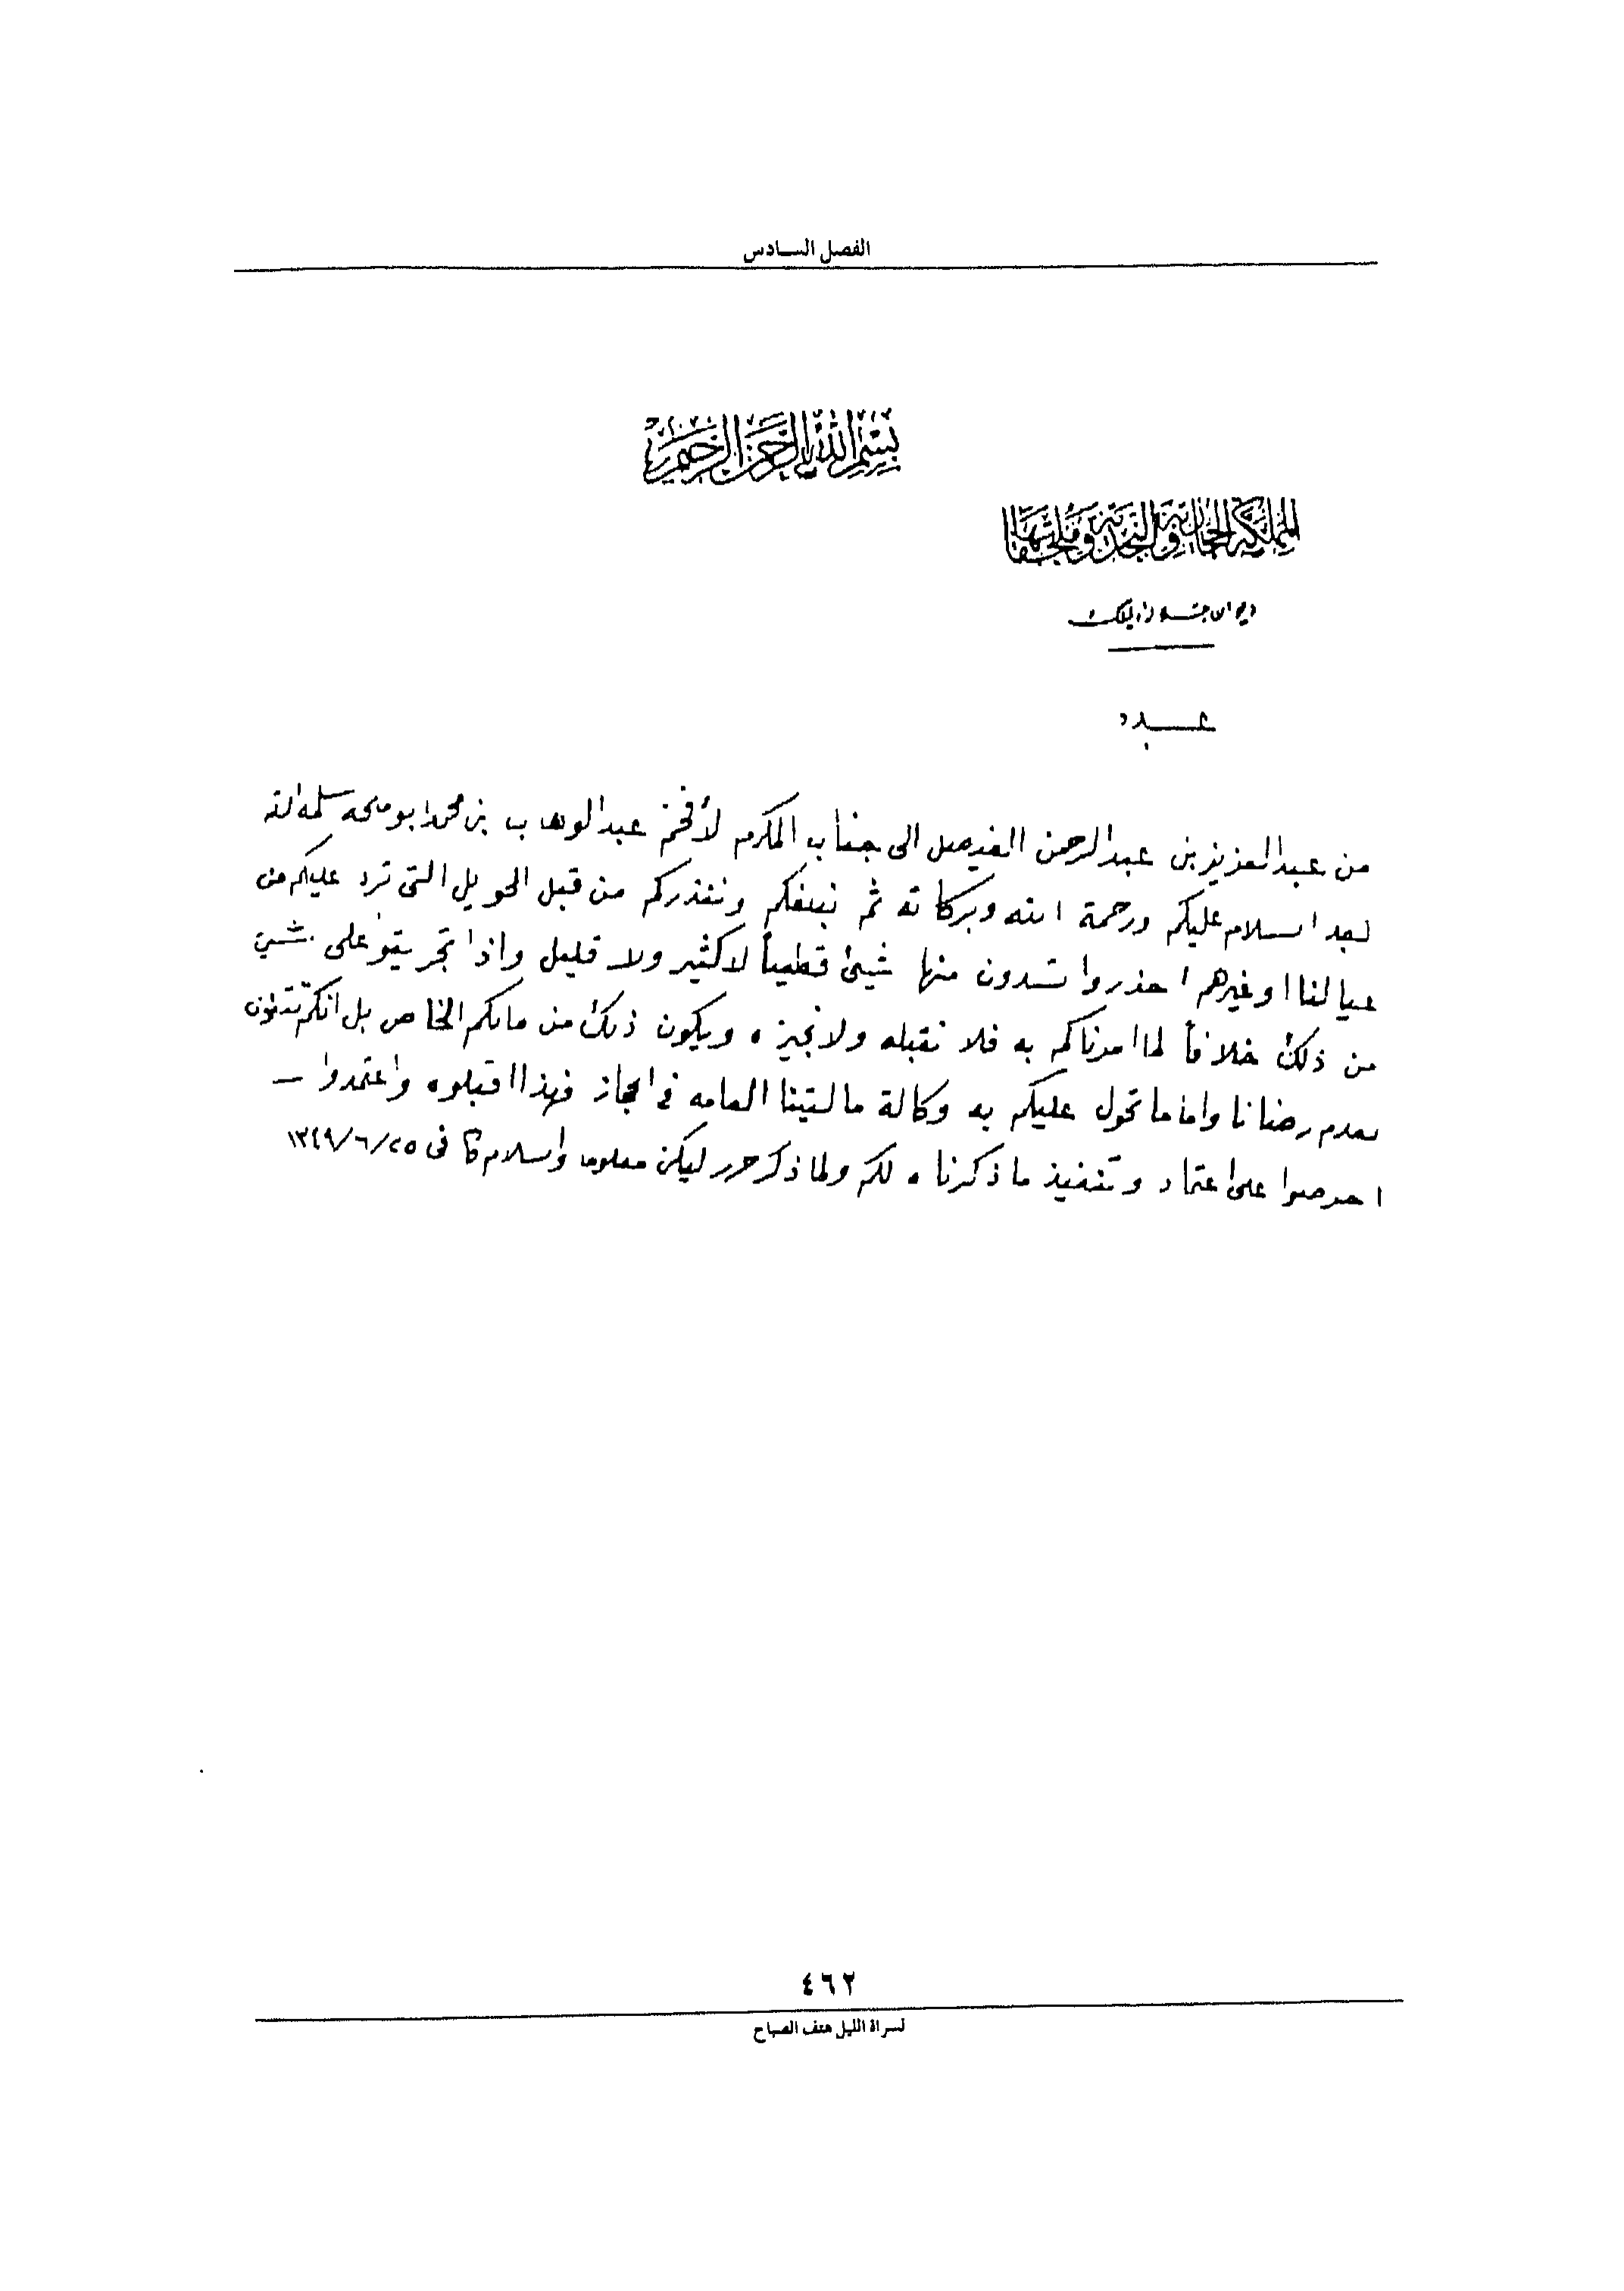 الفصل السادس
بسم الله الرحمن الرحيم
المملكة الحجازية والنجدية وملحقاتها
ديوان جلالة الملك
عدد
من عبد العزيز بن عبد الرحمن الفيصل الى جناب المكرم لأفخم عبد الوهاب بن محمد ابو ملحه سلمه الله
بعد السلام عليكم ورحمة الله وبركاته ثم نبلغكم وننذركم من قبل الحويل التي ترد عليكم من
عيالنا او غيرهم احذروا تسدون منها شيئ قطعياً لا كثير ولا قليل واذا تجريتو على شيئ
من ذلك خلافاً لما امرناكم به فلا نقبله ولا نجيزه ويكون ذلك من مالكم الخاص بل انكم
بعدم رضانا واما ما تحول عليكم به وكالة ماليتنا العامه في الحجاز فهذا اقبلوه واعتمدوا –
احرصوا على اعتماد وتنفيذ ما ذكرناه لكم ولما ذكر حرر ليكن معلوما والسلام في ١٣٤٩/٦/٢٥
٤٦٢
لسراة الليل هتف الصباح